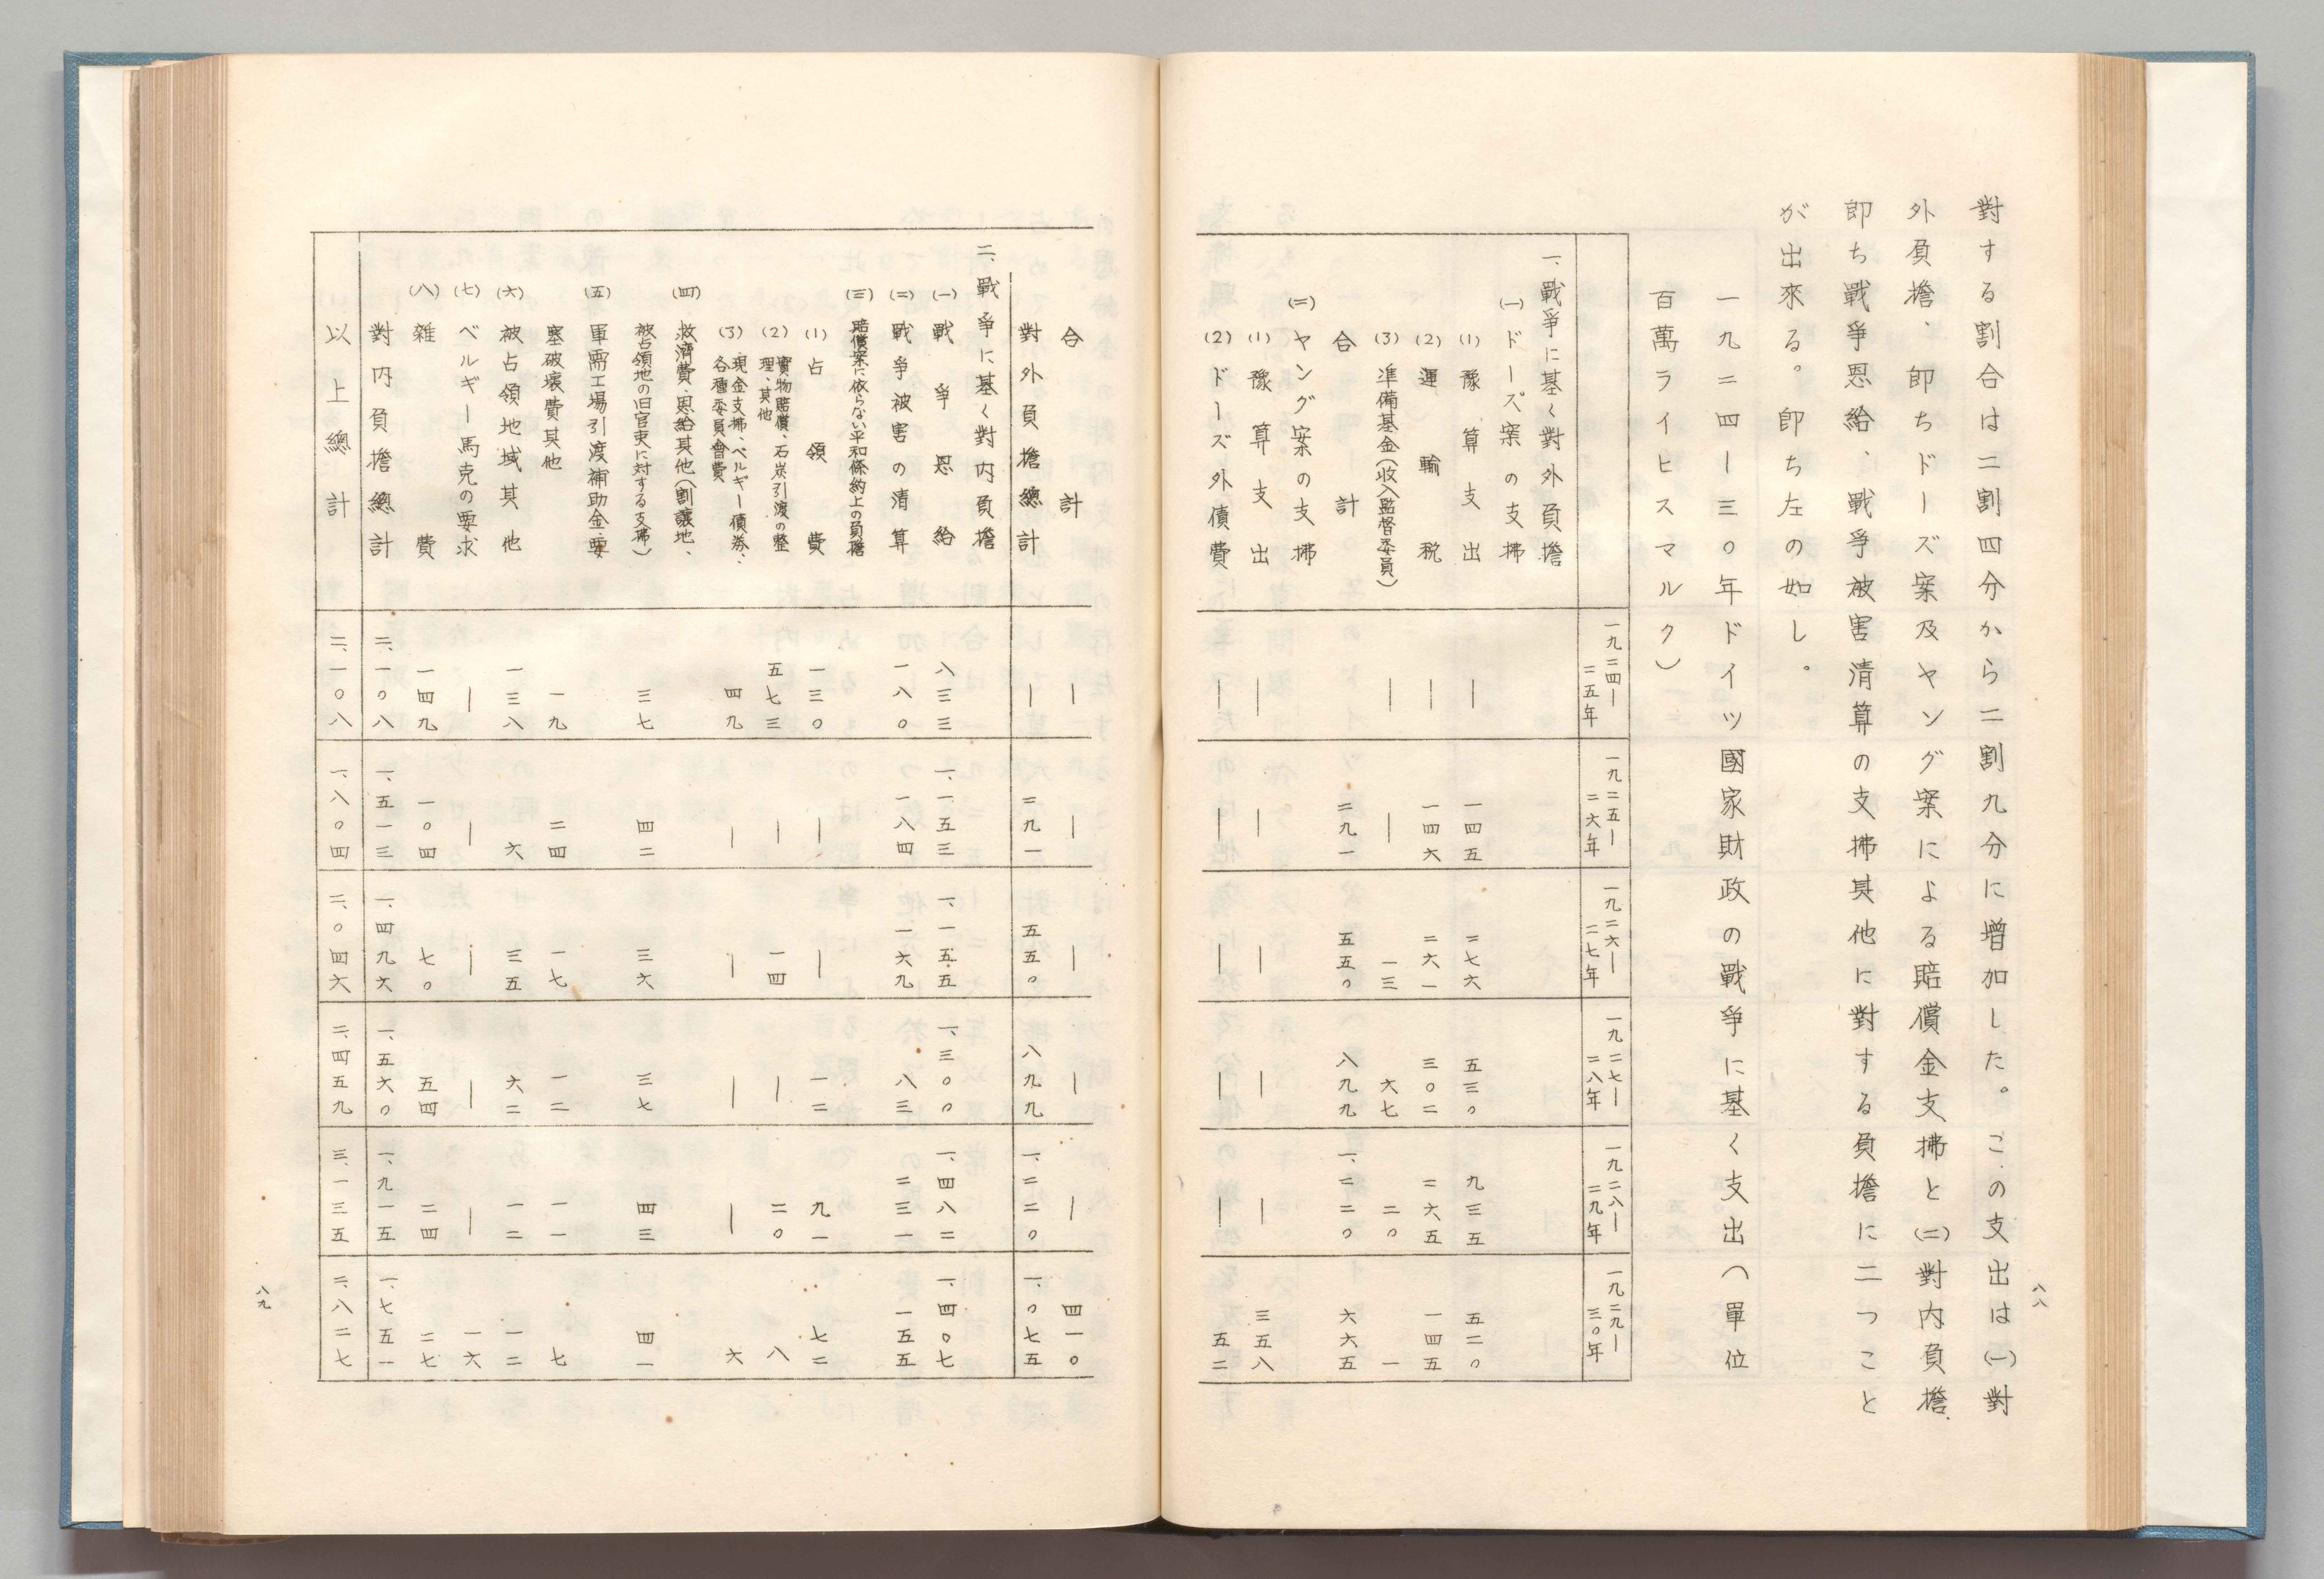 八八
對する割合は二割四分から二割九分に増加した。この支出は(一)對
外負擔、即ちドーズ案及ヤング案による賠償金支拂と(二)對内負擔、
即ち戰爭恩給、戰爭被害清算の支拂其他に對する負擔に二つこと
が出來る。即ち左の如し。
一九二四ー三〇年ドイツ國家財政の戰爭に基く支出(單位
百萬ライヒスマルク)
一九二四ー二五年 一九二五ー二六年 一九二六ー二七年 一九二七ー二八年 一九二八ー二九年 一九二九ー三〇年
一、戰爭に基く對外負擔
(一)ドーズ案の支拂
(1)豫算支出 ー 一四五 二七六 五三〇 九三五 五二〇
(2)運輸税 ー 一四六 二六一 三〇二 二六五 一四五
(3)準備基金(收入監督委員) ー ー 一三 六七 二〇 一
合計 二九一 五五〇 八九九 一、二二〇 六六五
(二)ヤング案の支拂
(1)豫算支出 ー ー ー ー ー 三五八
(2)ドーズ外債費 ー ー ー ー ー 五二
合計 ー ー ー ー ー 四一〇
對外負擔總計 ー 二九一 五五〇 八九九 一、二二〇 一、〇七五
二、戰爭に基く對内負擔
(一)戰爭恩給 八三三 一、一五三 一、一五五 一、三〇〇 一、四八二 一、四〇七
(二)戰爭被害の清算 一八〇 一八四 一六九 八三 二三一 一五五
(三)賠償案に依らない平和條約上の負擔
(1)占領費 一三〇 ー ー 一二 九一 七二
(2)實物賠償、石炭引渡の整
理、其他 五七三 ー 一四 ー 二〇 八
(3)現金支拂、ベルギー債券、
各種委員會費 四九 ー ー ー ー 六
(四)救濟費、恩給其他(割讓地、
被占領地の旧官吏に対する支拂) 三七 四二 三六 三七 四三 四一
(五)軍需工場引渡補助金、要
塞破壞費其他 一九 二四 一七 一二 一一 七
(六)被占領地域其他 一三八 六 三五 六二 一二 一二
(七)ベルギー馬克の要求 ー ー ー ー ー 一六
(八)雜費 一四九 一〇四 七〇 五四 二四 二七
對内負擔總計 二、一〇八 一、五一三 一、四九六 一、五六〇 一、九一五 一、七五一
以上總計 二、一〇八 一、八〇四 二、〇四六 二、四五九 三、一三五 二、八二七
八九